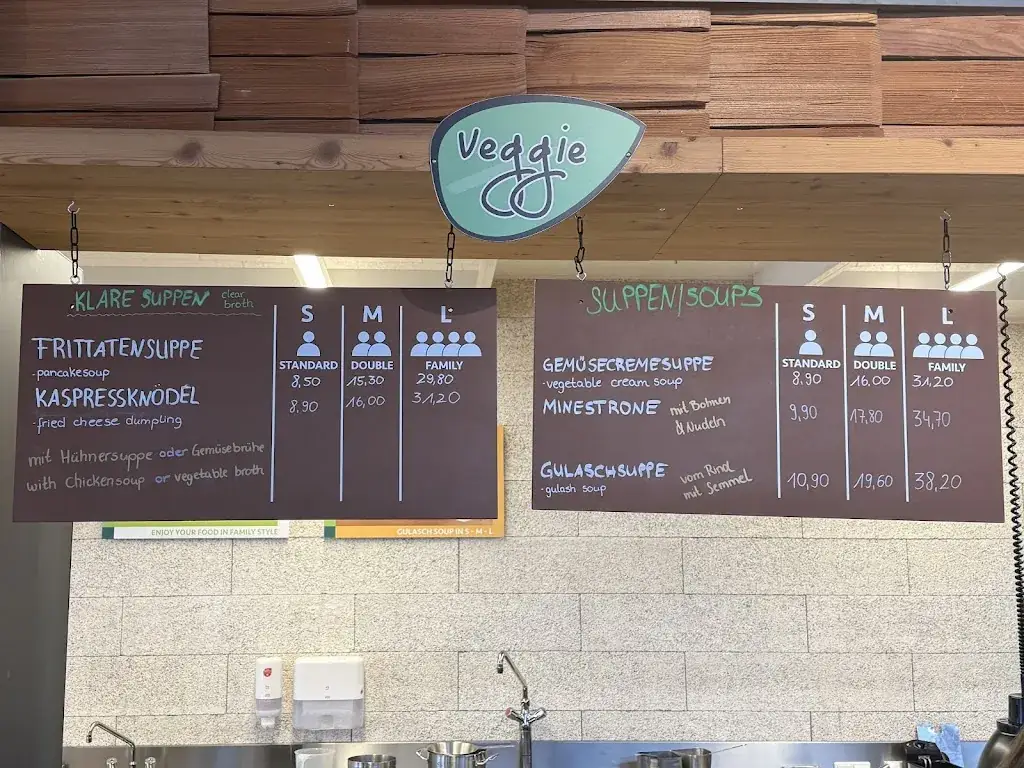 Veggie
KLARE SUPPEN clear broth
S M L
STANDARD DOUBLE FAMILY
FRITTATENSUPPE 8,50 15,30 29,80
-pancakesoup
KASPRESSKNÖDEL 8,90 16,00 31,20
-fried cheese dumpling
mit Hühnersuppe oder Gemüsebrühe
with Chickensoup or vegetable broth
SUPPEN/SOUPS
S M L
STANDARD DOUBLE FAMILY
GEMÜSECREMESUPPE 8,90 16,00 31,20
-vegetable cream soup
MINESTRONE mit Bohnen & Nudeln 9,90 17,80 34,70
GULASCHSUPPE vom Rind mit Semmel 10,90 19,60 38,20
-gulash soup
ENJOY YOUR FOOD IN FAMILY STYLE
GULASCH SOUP IN S - M - L